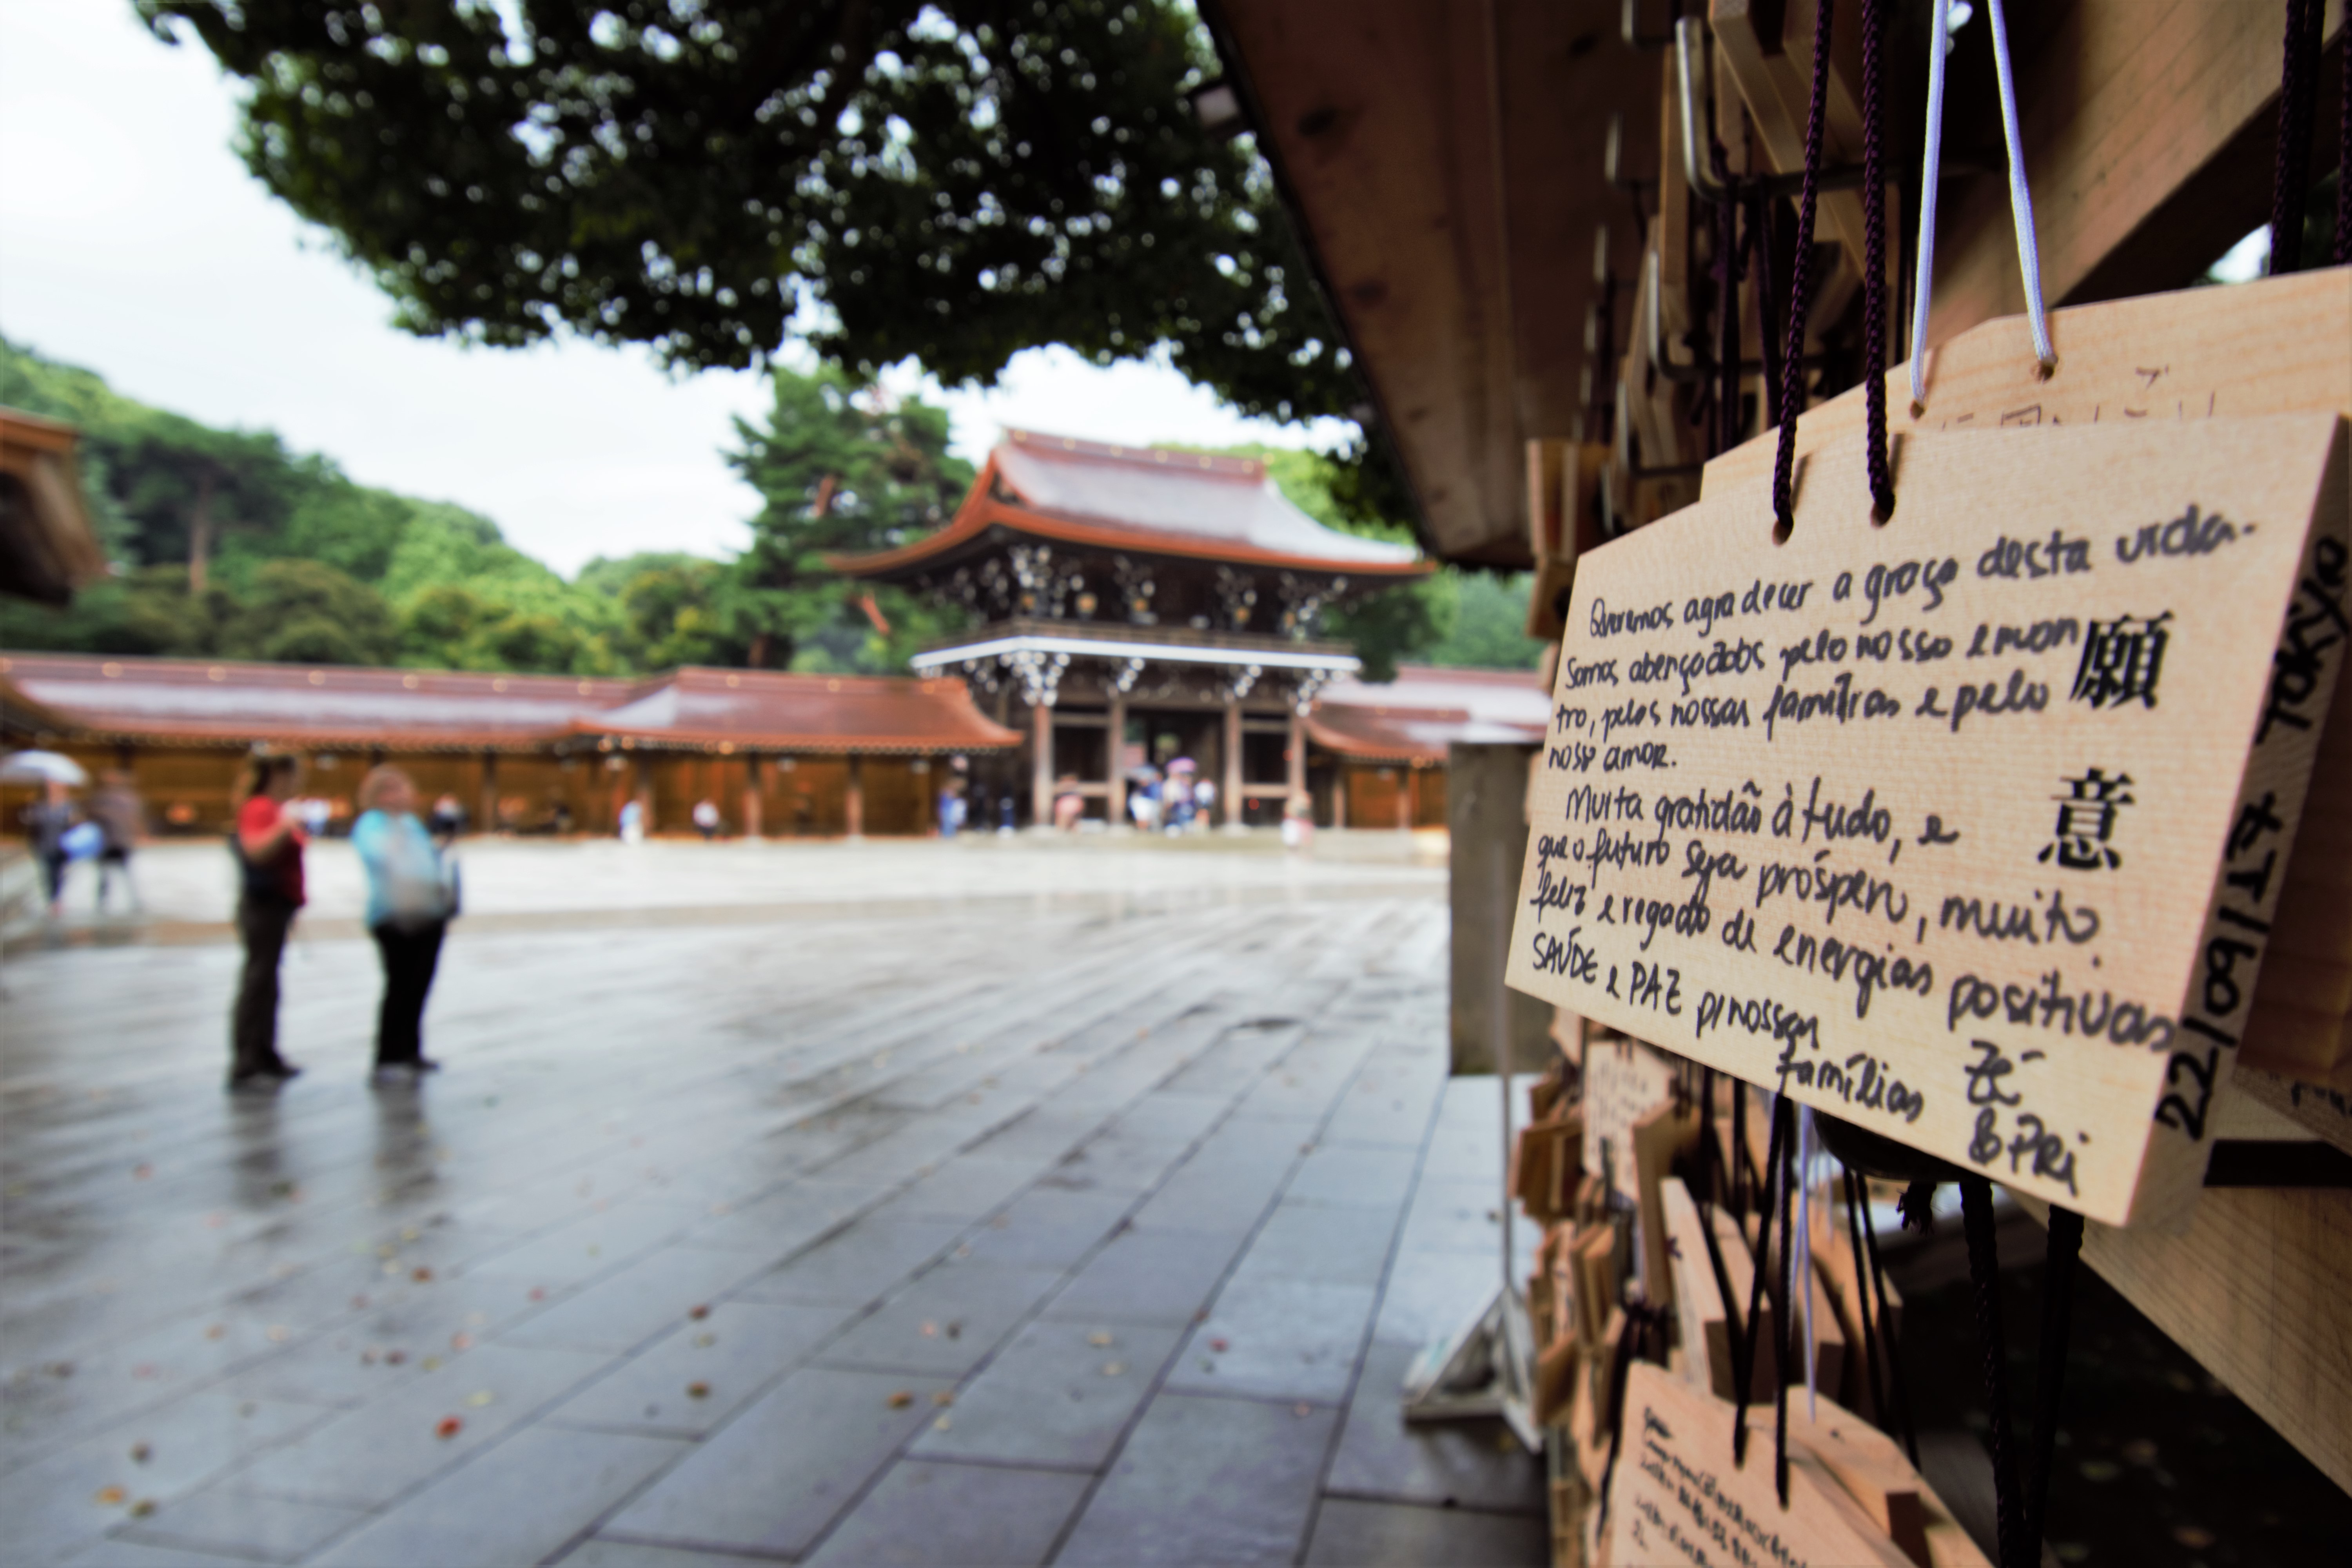 Queremos agradecer a graça desta vida.
Somos abençoados pelo nosso encon
tro, pelas nossas famílias e pelo
nosso amor.
Muita gratidão à tudo, e
que o futuro seja próspero, muito
feliz e regado de energias positivas.
SAÚDE e PAZ p/ nossas
famílias
Zé
&PRi
願
意
22/09/17 TOKYO